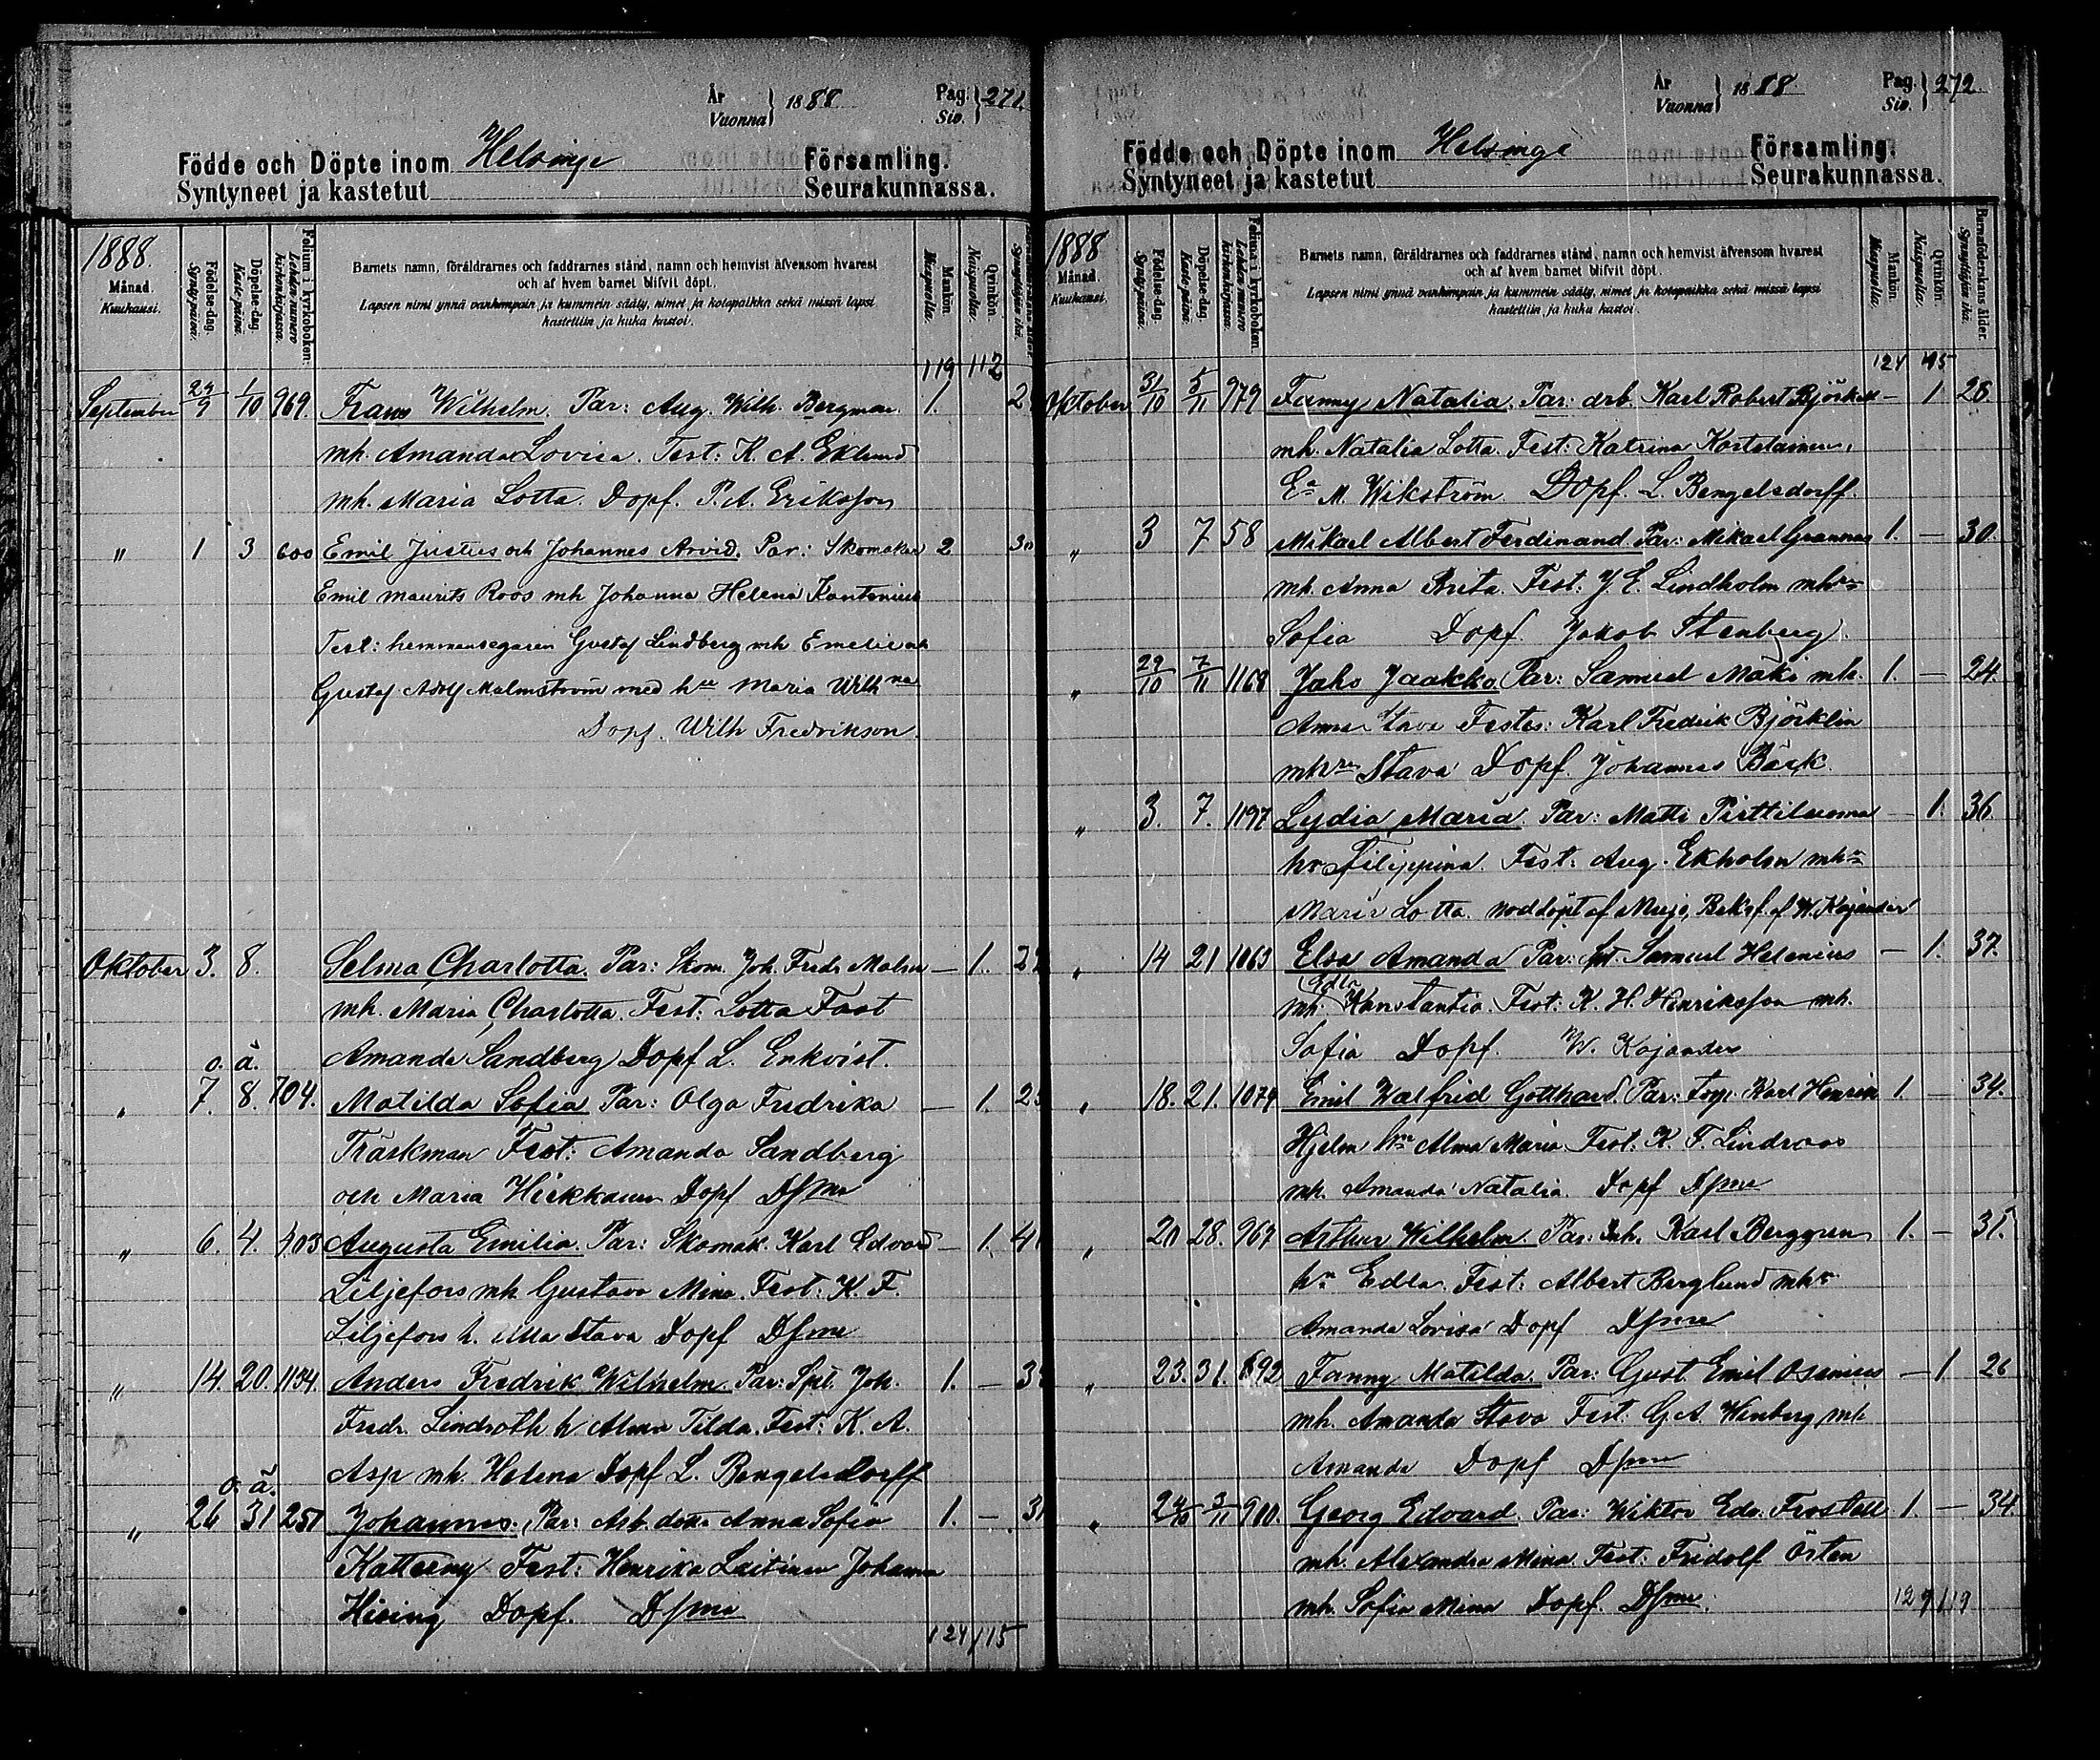 År
Vuonna } 1888. Pag. Siv. } 271
Födde och Döpte inom Helsinge Församling.
Syntyneet ja kastetut Seurakunnassa.
1888.
Månad.
Kuukausi.
Födelse-dag.
Syntypäivä.
Döpelse-dag.
Kaste-päivä.
Folium i kyrkoboken:
Lehden numero kirkonkirjassa.
Barnets namn, föräldrarnes och faddrarnes stånd, namn och hemvist äfvensom hvarest
och af hvem barnet blifvit döpt.
Lapsen nimi ynnä vanhimpain ja kummein sääty, nimet ja kotopaikka sekä missä lapsi
kastettiin ja kuka kastoi.
Mankön.
Miespuolia.
Qvinkön.
Naispuolia.
119 112
September 29/9 1/10 969. Frans Wilhelm. Par: Aug. Wilh. Bergman 1.
mh. Amanda Lovisa. Test: K. A. Eklund
mh. Maria Lotta. Dopf. P. A. Eriksson
" 1 3 600 Emil Justus och Johannes Arvid. Par: Skomakar 2 30
Emil Maurits Roos mh Johanna Helena Kantonius
Test: hemmansegaren Gustaf Lindberg mh Emelie och
Gustaf Adolf Malmström med hu Maria Wilhna
Dopf. Wilh Fredrikson.
Oktober 3. 8. Selma Charlotta. Par: Skom. Joh. Fredr Malm — 1.
mh. Maria Charlotta. Test: Lotta Fast
o. ä. Amanda Sandberg Dopf L. Enkvist.
" 7. 8. 704. Matilda Sofia Par: Olga Fredrika — 1.
Träskman Test: Amanda Sandberg
och Maria Hickkanen Dopf Dsme
" 6. 4. 403 Augusta Emilia. Par: Skomak. Karl Edvard — 1.
Liljefors mh Gustava Mina. Test: K. F.
Liljefors h. Ulla Stava Dopf Dsme
" 14. 20. 1134. Anders Fredrik Wilhelm. Par: Spl. Joh. 1. —
Fredr. Lindroth h Alma Tilda. Test: K. A.
Asp mh. Helena Dopf L. Bengelsdorff
o. ä.
" 26 31 251 Johannes. Par: Arb. dotr Anna Sofia 1. —
Katterny Test: Henrika Laitinen Johanna
Hising Dopf. Dsme
124/115
År
Vuonna } 1888. Pag. Siv. } 272.
Födde och Döpte inom Helsinge Församling.
Syntyneet ja kastetut Seurakunnassa.
1888
Månad.
Kuukausi.
Födelse-dag.
Syntypäivä.
Döpelse-dag.
Kaste-päivä.
Folium i kyrkoboken.
Lehden numero kirkonkirjassa.
Barnets namn, föräldrarnes och faddrarnes stånd, namn och hemvist äfvensom hvarest
och af hvem barnet blifvit döpt.
Lapsen nimi ynnä vanhimpain ja kummein sääty, nimet ja kotopaikka sekä missä lapsi
kastettiin ja kuka kastoi.
Mankön.
Miespuolia.
Qvinkön.
Naispuolia.
Barnaföderskans ålder.
Synnyttäjän ikä.
124 115
Oktober 31/10 5/11 979 Fanny Natalia. Par: arb. Karl Robert Björkell — 1 28.
mh. Natalia Lotta. Test: Katrina Kartelainen,
Ea M. Wikström Dopf. L. Bengelsdorff.
" 3 7 58 Mikael Albert Ferdinand. Par: Mikael Grannas 1. — 30
mh. Anna Brita. Test: J E. Lindholm mhr
Sofia Dopf. Jakob Stenberg.
" 29/10 7/11 1168 Jaho Jaakko. Par: Samuel Mäki mh. 1. — 24.
Anna Stava Testes: Karl Fredrik Björklin
mhru Stava Dopf. Johannes Bäck.
" 3. 7. 1197 Lydia Maria. Par: Matti Pirttiluoma — 1. 36
hr Filippina. Test: Aug. Ekholm mhr
Maria Lotta. nöddöpt af Bekrf. af W. Kajander
" 14 21 1063 Elva Amanda Par: Samuel Helenius — 1. 37.
Edla
mh. Konstantia. Test: K. H. Henriksson mh.
Sofia Dopf. W. Kajander
" 18. 21. 1074 Emil Walfrid Gotthard. Par: torp. Karl Henrik 1. — 34.
Hjelm hu Alma Maria Test. K. F. Lindroos
mh. Amanda Natalia. Dopf Dsme
" 20 28. 967 Arthur Wilhelm. Par: Inh. Karl Berggren 1. — 31.
hu Edla. Test: Albert Berglund mhr
Amanda Lovisa Dopf Dsme
" 23. 31. 692 Fanny Matilda. Par: Gust. Emil Osenius — 1 26
mh. Amanda Stava Test: G. A. Wenberg mh
Amanda Dopf Dsme
" 24/10 3/11 900. Georg Edvard. Par: Wiktor Edv. Frostell 1. — 34
mh. Alexandra Mina. Test: Fridolf Östen
mh. Sofia Mina Dopf. Dsme.
129/119